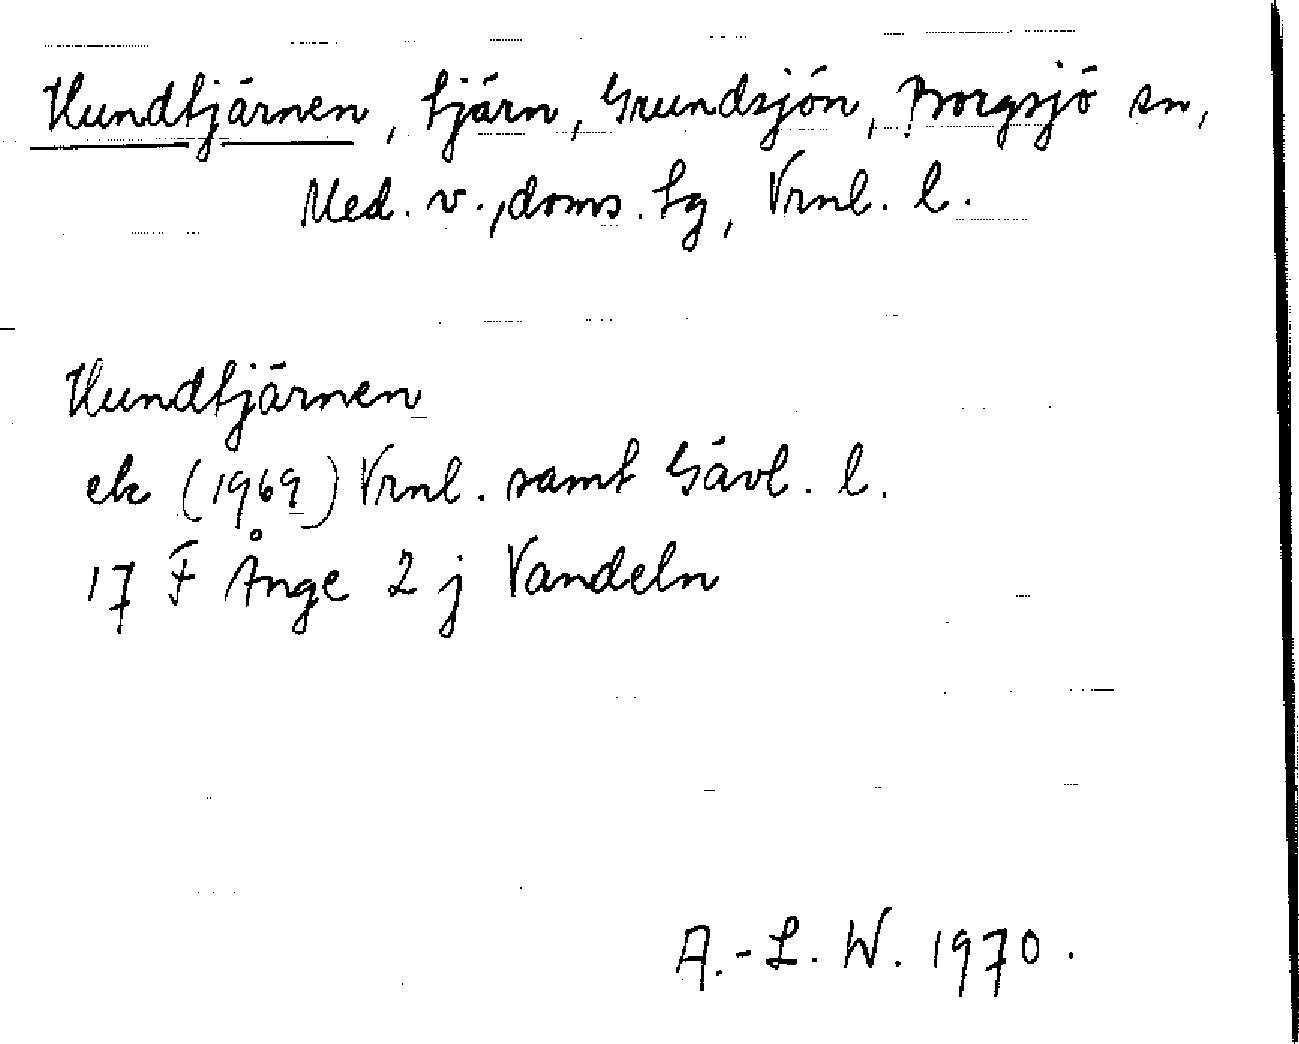 Hundtjärnen, tjärn, Grundsjön, Borgsjö sn,
Med. v., doms. tg, Vrnl. l.
Hundtjärnen
ek (1969) Vrnl. samt Gävl. l.
17 F Ånge 2 j Vandeln
A.-L. W. 1970.